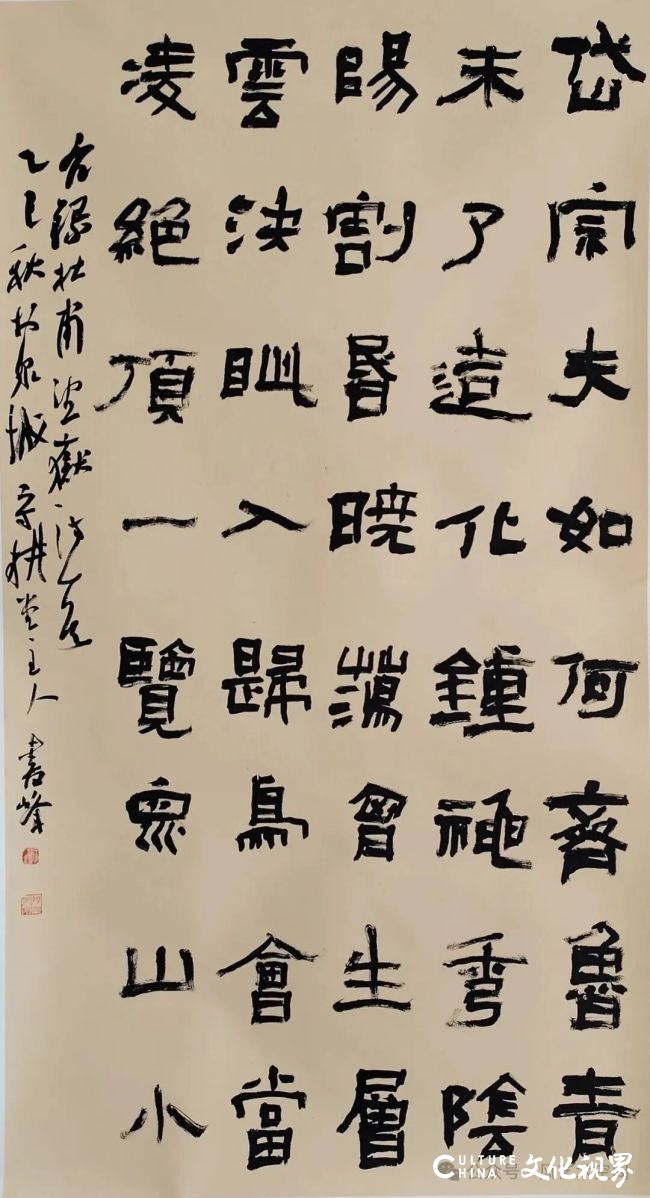 岱宗夫如何齊魯青
未了造化鍾神秀陰
陽割昏曉蕩胷生層
雲決眦入歸鳥會當
凌絕頂一覽眾山小
右録杜甫望嶽一詩
乙巳秋於泉城守耕堂主人書峰
公众号
CULTURE CHINA 文化视界